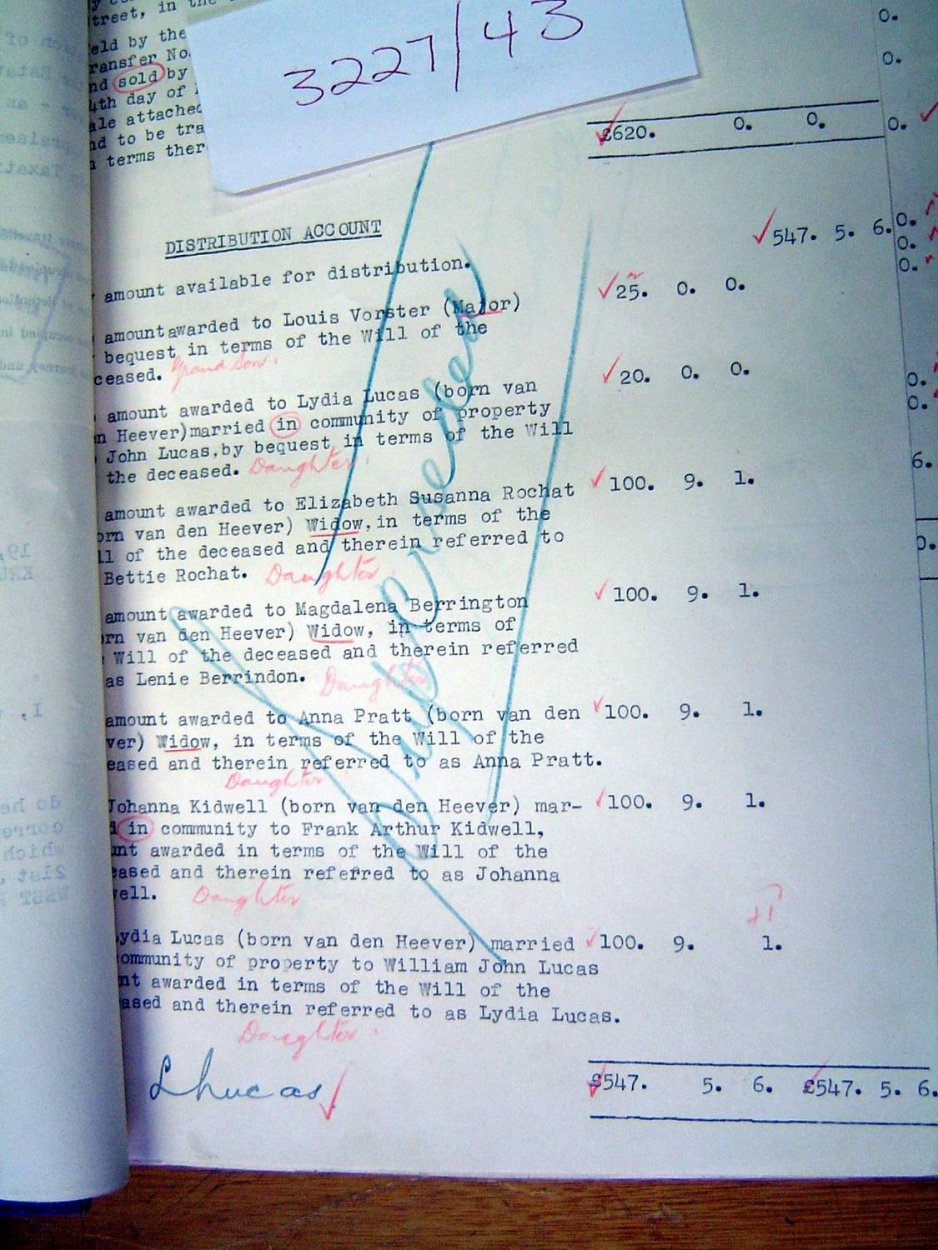 treet, in the
eld by the
ransfer No.
nd sold by
4th day of
ale attached
nd to be tra
n terms ther
3227/43
0.
0.
£620. 0. 0. 0.
DISTRIBUTION ACCOUNT
547. 5. 6. 0.
0.
amount available for distribution.
0.
amountawarded to Louis Vorster (Major) 25. 0. 0.
bequest in terms of the Will of the
ceased. Grand Son.
amount awarded to Lydia Lucas (born van 20. 0. 0. 0.
n Heever)married in community of property 0.
John Lucas,by bequest in terms of the Will
the deceased. Daughter. 6.
amount awarded to Elizabeth Susanna Rochat 100. 9. 1.
orn van den Heever) Widow,in terms of the
ll of the deceased and therein referred to 0.
Bettie Rochat. Daughter.
amount awarded to Magdalena Berrington 100. 9. 1.
rn van den Heever) Widow, in terms of
Will of the deceased and therein referred
as Lenie Berrindon. Daughter
amount awarded to Anna Pratt (born van den 100. 9. 1.
ver) Widow, in terms of the Will of the
eased and therein referred to as Anna Pratt.
Daughter
Johanna Kidwell (born van den Heever) mar- 100. 9. 1.
d in community to Frank Arthur Kidwell,
unt awarded in terms of the Will of the
eased and therein referred to as Johanna
well. Daughter
+1
ydia Lucas (born van den Heever) married 100. 9. 1.
ommunity of property to William John Lucas
nt awarded in terms of the Will of the
ased and therein referred to as Lydia Lucas.
Daughter.
Superseded
L Lucas
£547. 5. 6. £547. 5. 6.